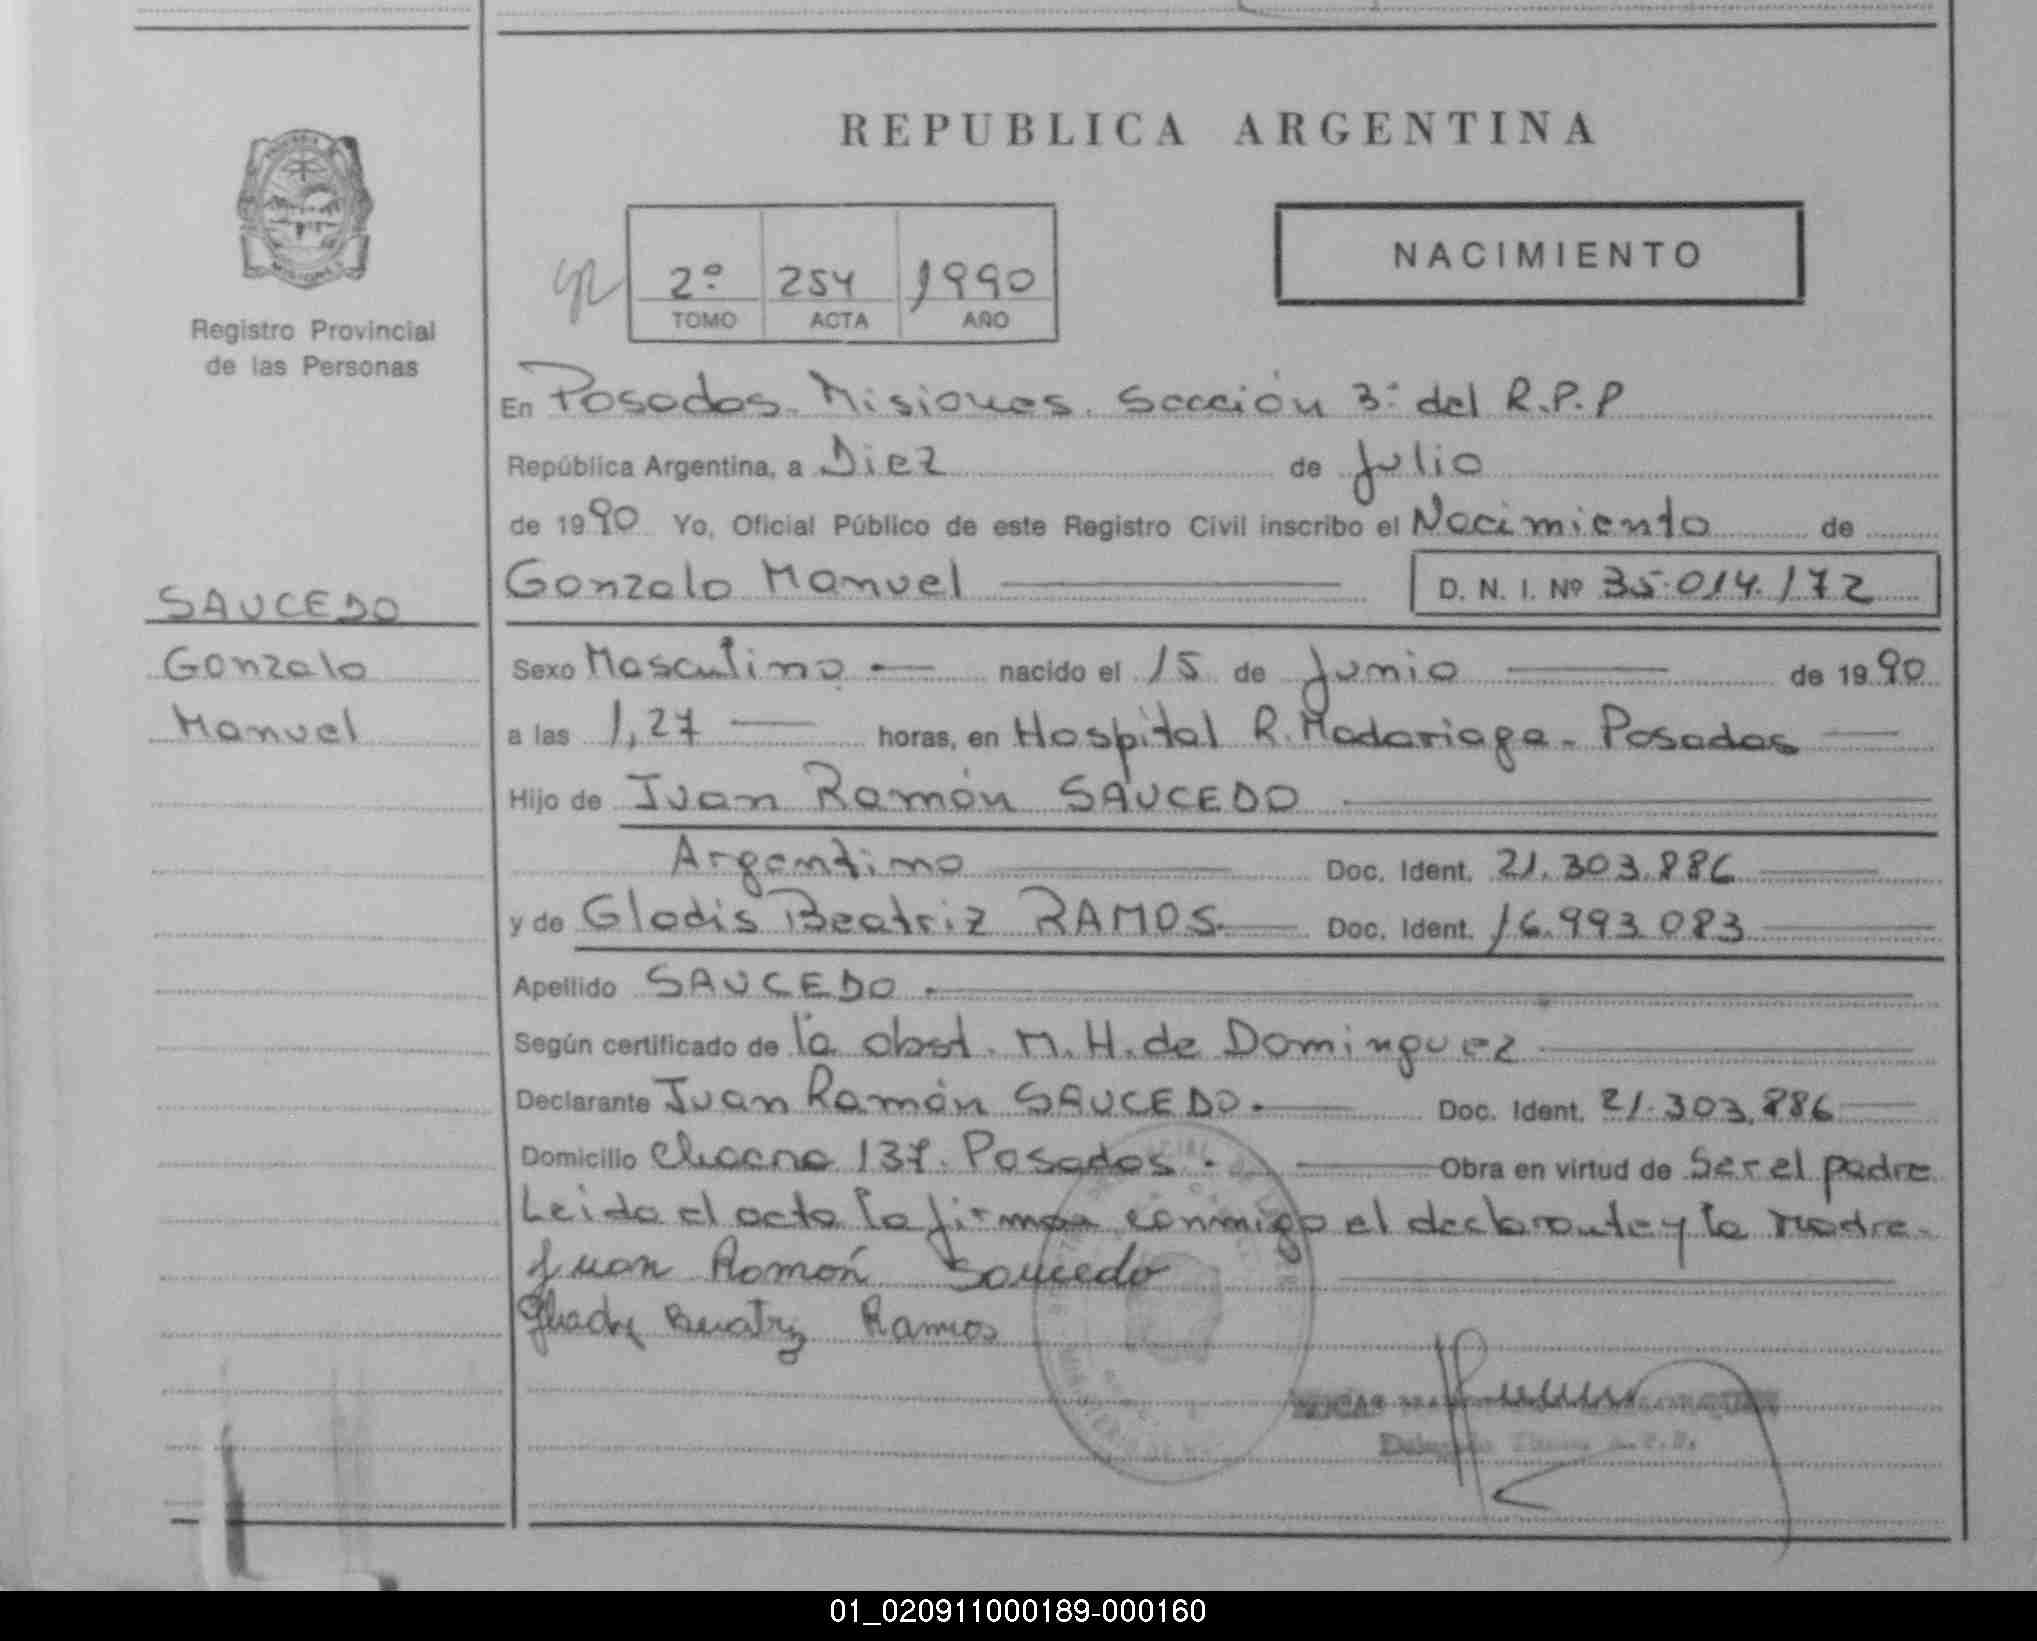 REPUBLICA ARGENTINA
NACIMIENTO
2º 254 1990
TOMO ACTA AÑO
Registro Provincial
de las Personas
En Posadas. Misiones. Sección 3ª del R.P.P
República Argentina, a Diez de Julio
de 1990 Yo, Oficial Público de este Registro Civil inscribo el Nacimiento de
Gonzalo Manuel D. N. I. Nº 35.014.172
SAUCEDO
Gonzalo
Manuel
Sexo Masculino nacido el 15 de Junio de 1990
a las 1,27 horas, en Hospital R. Madariaga - Posadas
Hijo de Juan Ramón SAUCEDO
Argentino Doc. Ident. 21.303.886
y de Gladis Beatriz RAMOS Doc. Ident. 16.993.083
Apellido SAUCEDO
Según certificado de la obst. M. H. de Dominguez
Declarante Juan Ramón SAUCEDO. Doc. Ident. 21.303.886
Domicilio 137. Posadas. Obra en virtud de Ser el padre
Leida el acta la firman conmigo el declarante y la Madre.
Juan Ramón Saucedo
Beatriz Ramos
01_020911000189-000160